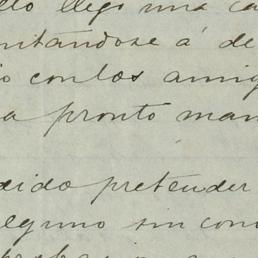 llegó una ca
ntandose á de
o con los amig
a pronto man
dido pretender
alguno sin con